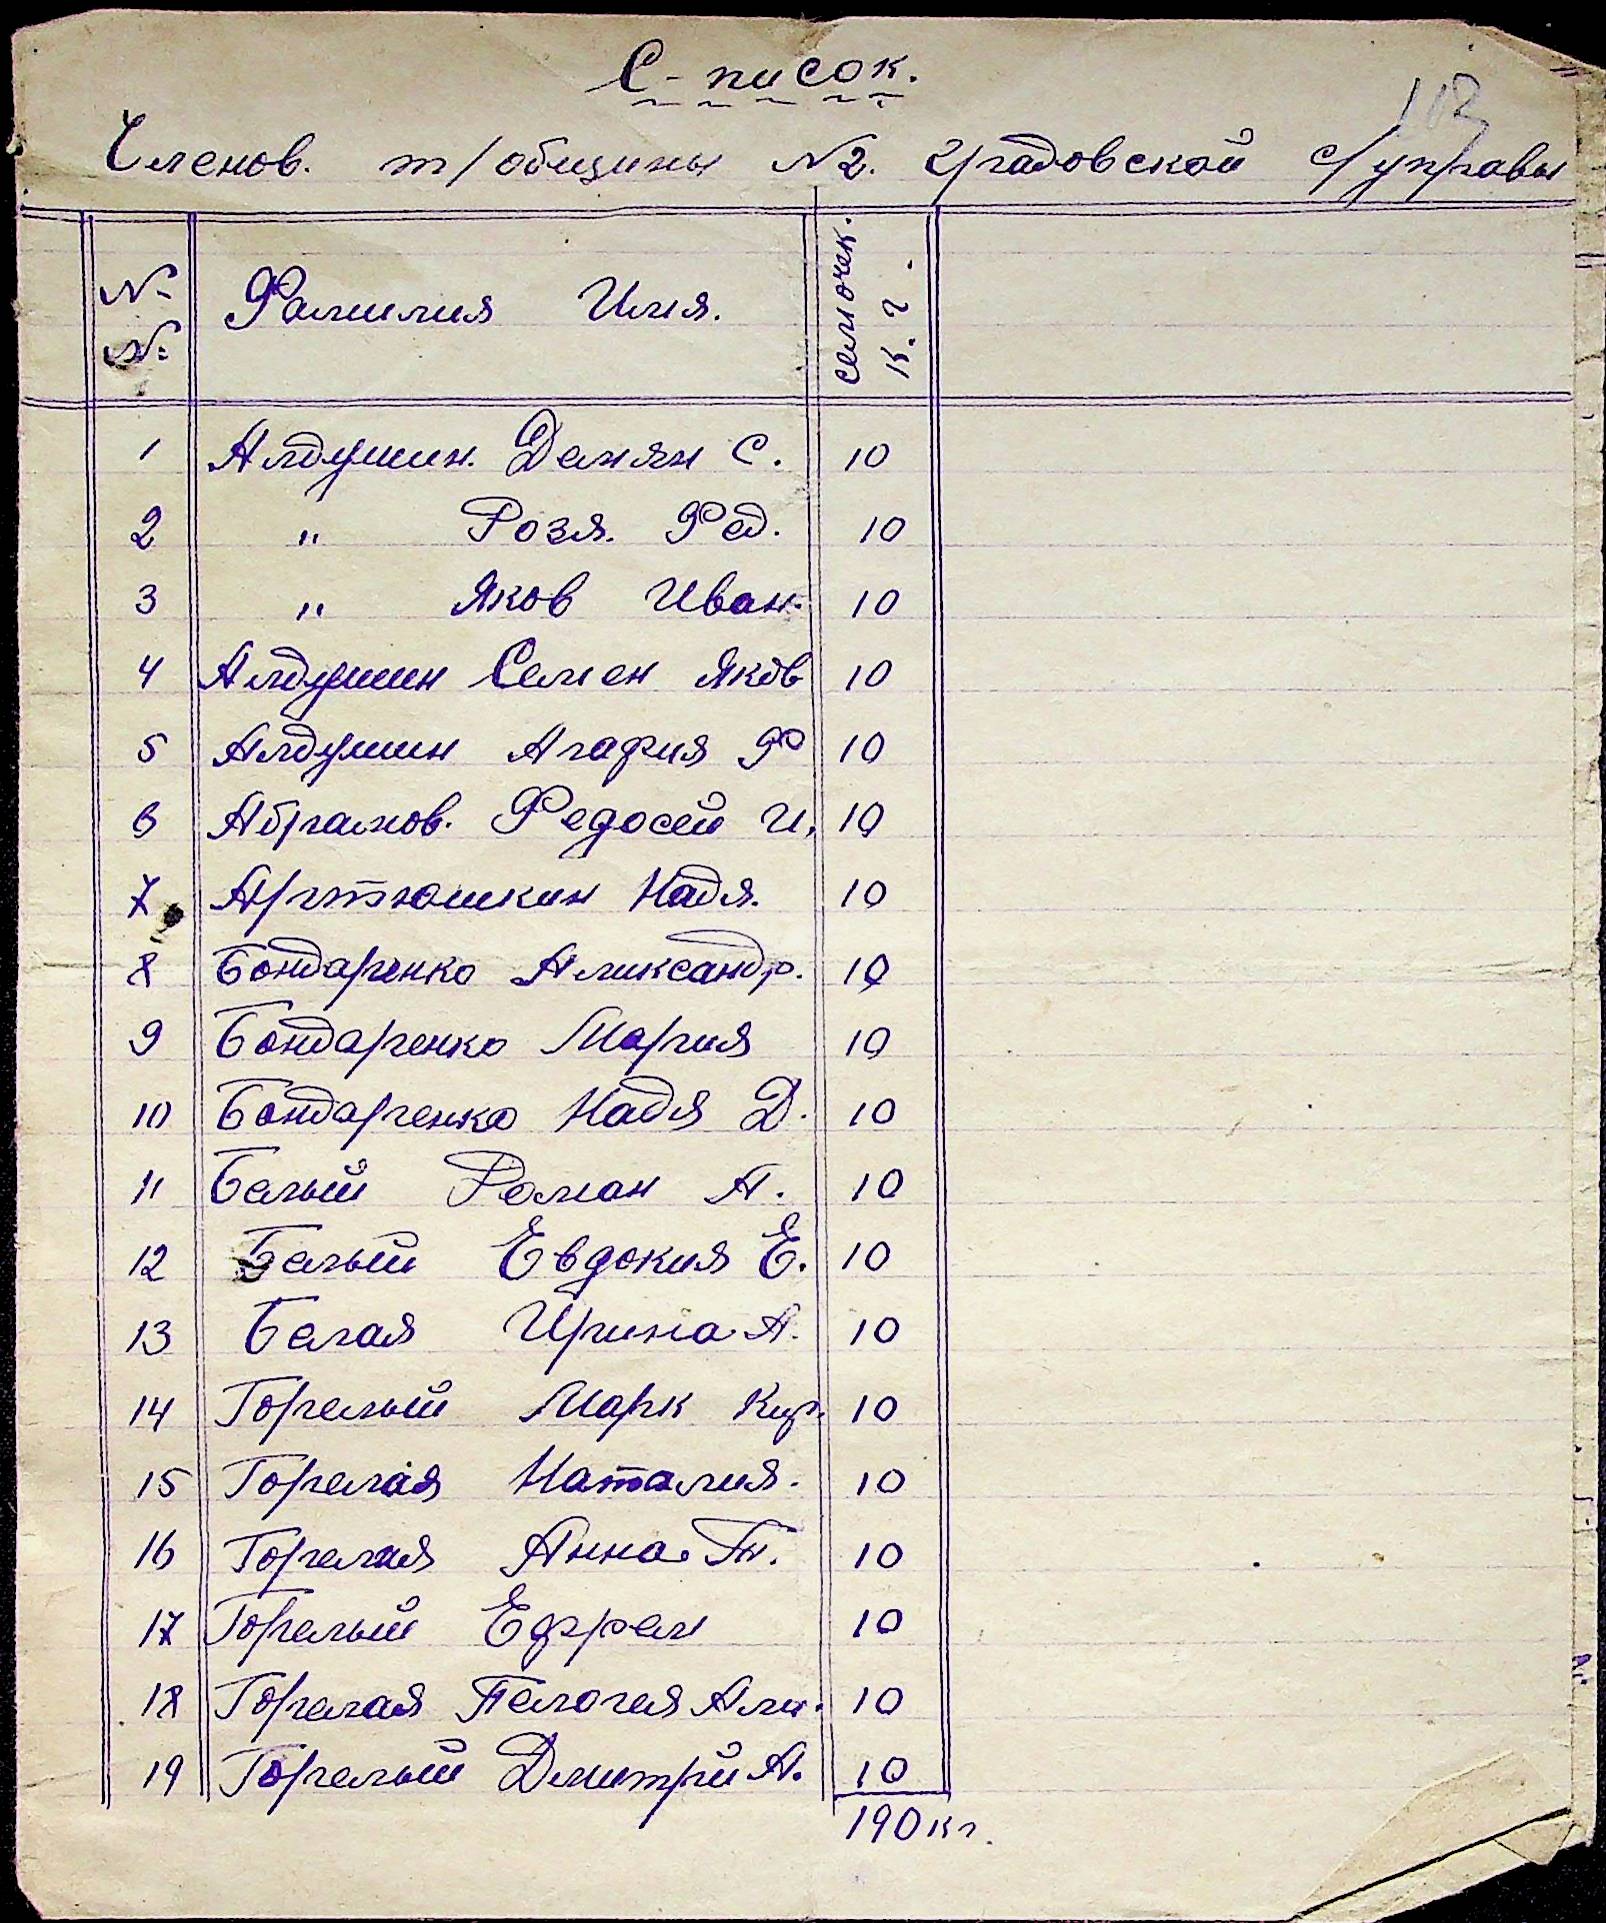 С-писок.
113
Членов. т/общины №2. Градовской с/управы
№ №
Фамилия Имя.
семочек. к.г.
1 Алдушин. Демян С. 10
2 " Розя. Фед. 10
3 " Яков Иван. 10
4 Алдушин Семен Яков 10
5 Алдушин Агафия Ф 10
6 Абрамов. Федосей И. 10
7 Артюшкин Надя. 10
8 Бондаренко Аликсандр. 10
9 Бондаренко Мария 10
10 Бондаренко Надя Д. 10
11 Белый Роман А. 10
12 Белый Евдокия Е. 10
13 Белая Ирина А. 10
14 Горелый Марк Кир. 10
15 Горелая Наталия. 10
16 Горелая Анна. 10
17 Горелый Ефрем 10
18 Горелая Пелогея 10
19 Горелый Дмитрй А. 10
190 кг.